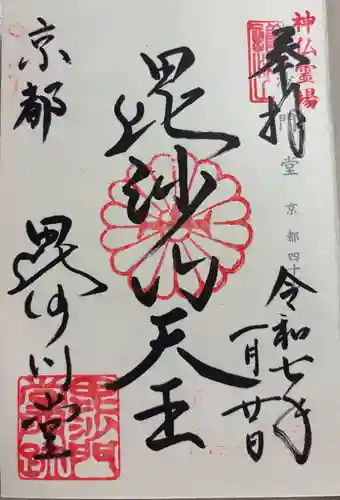 神仏霊場
奉拝
門堂
京都四十
令和七年
一月廿日
毘沙门天王
京都
毘沙门堂
毘沙門
堂跡